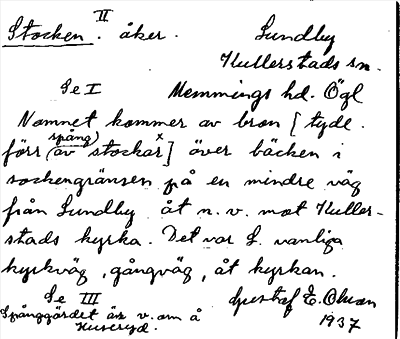 II
Stocken. åker. Lundby
Kullerstads sn.
Se I Memmings hd. Ögl
Namnet kommer av bron [tydl.
spång)
förr (av stockar x] över bäcken i
sockengränsen på en mindre väg
från Lundby åt n.v. mot Kuller-
stads kyrka. Det var L. vanliga
kyrkväg, gångväg, åt kyrkan.
Se III Gustaf E. Olsson
Spånggärdet är v. om å
1937